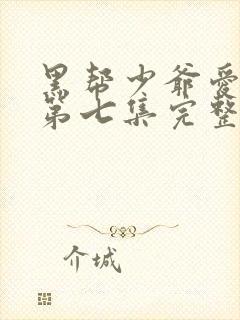 黑帮少爷爱
第七集完整
介城